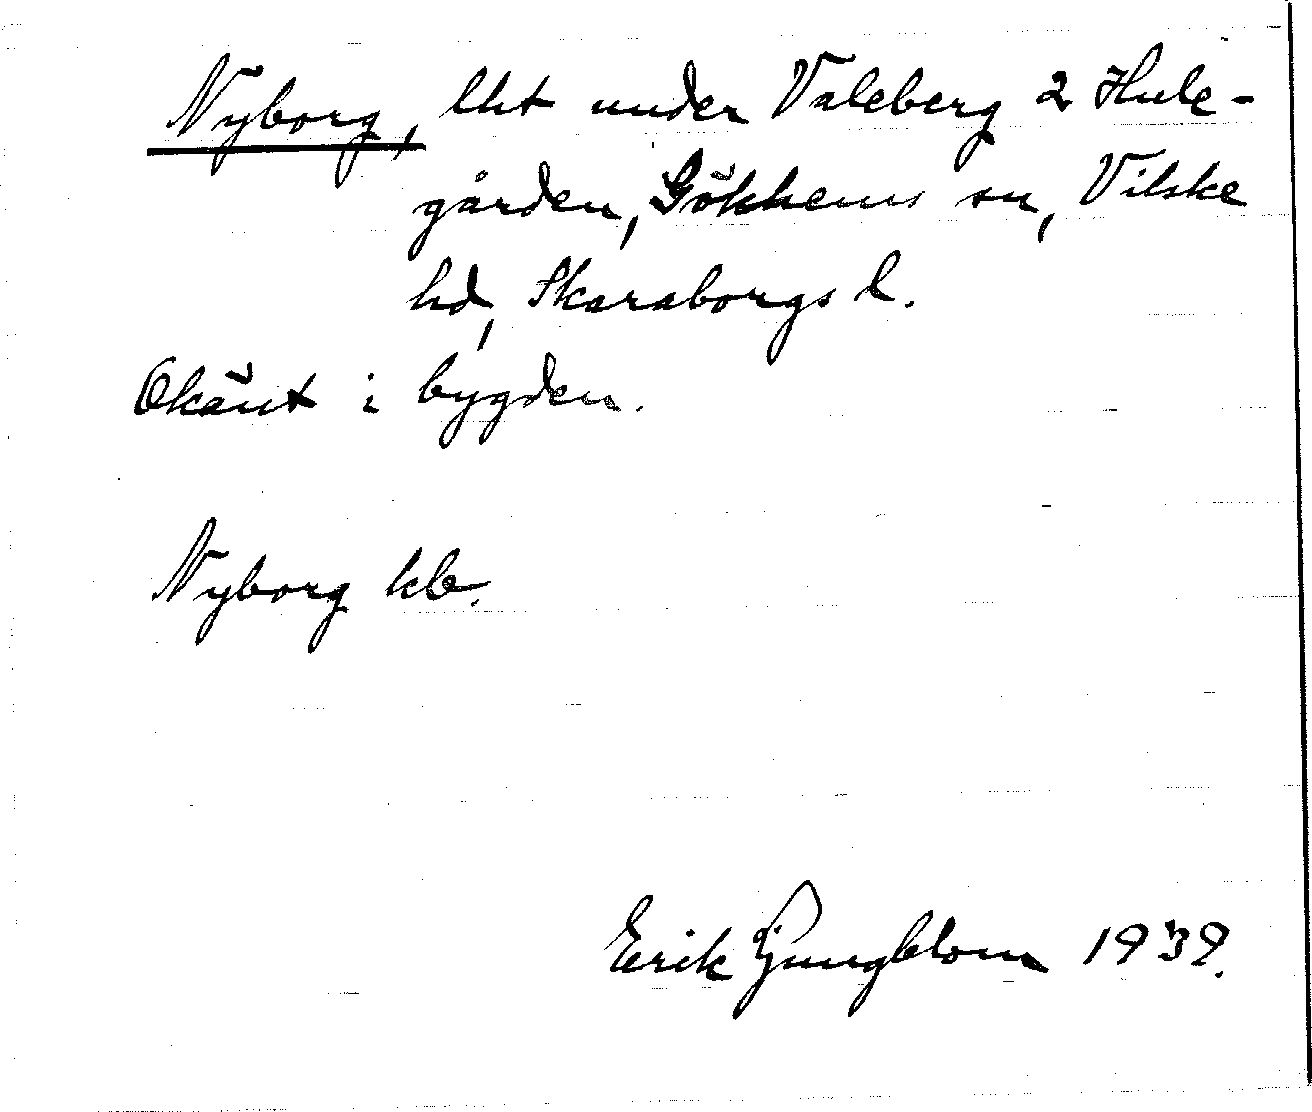 Nyborg, lht under Valeberg 2 Hule-
gården, Gökhems sn, Vilske
hd, Skaraborgs l.
Okänt i bygden.
Nyborg kb.
Erik Ljungblom 1939.